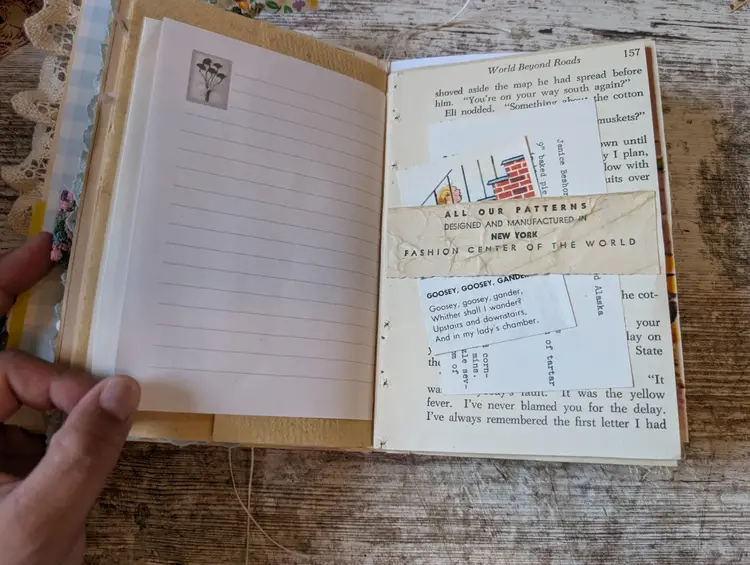 World Beyond Roads
157
shoved aside the map he had spread before
him. "You're on your way south again?"
Eli nodded. "Something about the cotton
muskets?"
wn until
y I plan,
low with
uits over
Janice Beshor
9" baked pie
ALL OUR PATTERNS
DESIGNED AND MANUFACTURED IN
NEW YORK
FASHION CENTER OF THE WORLD
GOOSEY, GOOSEY, GANDER
Goosey, goosey, gander,
Whither shall I wander?
Upstairs and downstairs,
And in my lady's chamber.
d Alaska
of tartar
corn-
mins.
tle sev-
m of
he cot-
your
lay on
the State
"It
wa fault. It was the yellow
fever. I've never blamed you for the delay.
I've always remembered the first letter I had